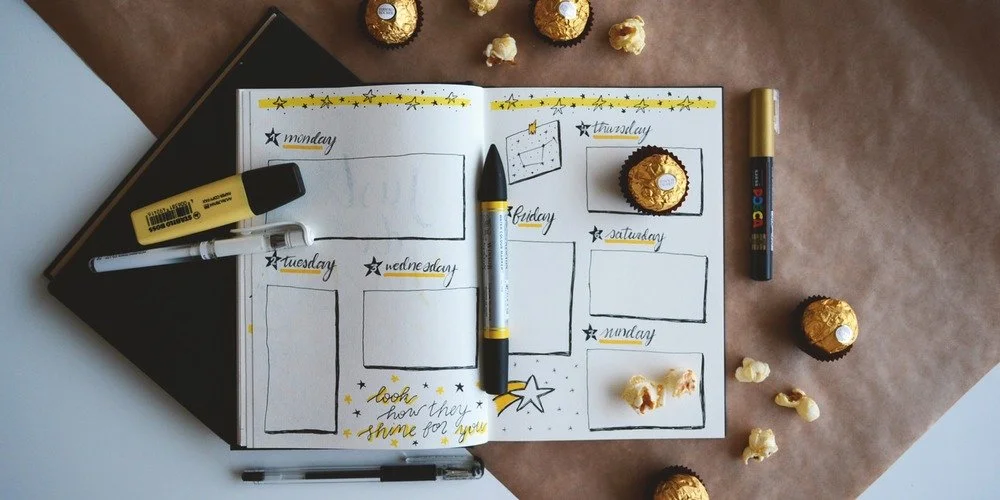 monday
tuesday
wednesday
look
how they
shine for you
thursday
friday
saturday
sunday
STABILO BOSS
POSCA